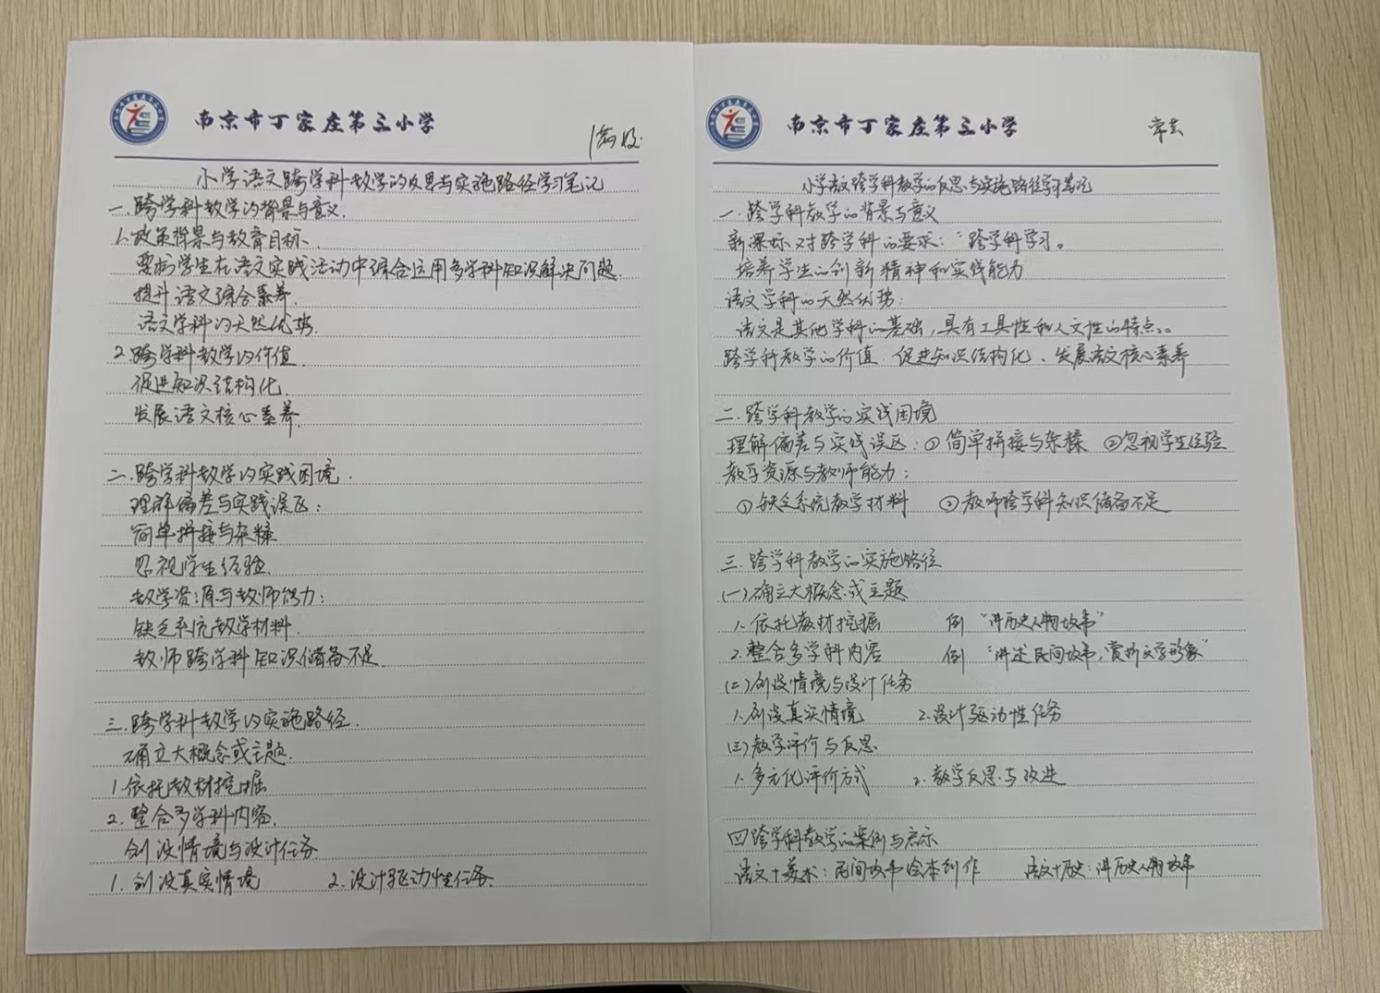 南京市丁家庄第三小学
小学语文跨学科教学的反思与实施路径学习笔记
一.跨学科教学的背景与意义.
1.政策背景与教育目标.
要求学生在语文实践活动中综合运用多学科知识解决问题.
提升语文综合素养.
语文学科的天然优势.
2.跨学科教学的价值.
促进知识结构化.
发展语文核心素养.
二.跨学科教学的实践困境.
理解偏差与实践误区:
简单拼接与杂糅
忽视学生经验.
教学资源与教师能力:
缺乏系统教学材料.
教师跨学科知识储备不足.
三.跨学科教学的实施路径.
确立大概念或主题.
1.依托教材挖掘
2.整合多学科内容.
创设情境与设计任务
1.创设真实情境 2.设计驱动性任务.
南京市丁家庄第三小学
小学语文跨学科教学的反思与实施路径学习笔记
一.跨学科教学的背景与意义
新课标对跨学科的要求:“跨学科学习。
培养学生的创新精神和实践能力
语文学科的天然优势:
语文是其他学科的基础,具有工具性和人文性的特点。
跨学科教学的价值:促进知识结构化、发展语文核心素养
二.跨学科教学的实践困境
理解偏差与实践误区:①简单拼接与杂糅 ②忽视学生经验
教学资源与教师能力:
①缺乏系统教学材料 ②教师跨学科知识储备不足
三.跨学科教学的实施路径
(一)确立大概念或主题
1.依托教材挖掘 例“讲历史人物故事”
2.整合多学科内容 例“讲述民间故事,赏析文学形象”
(二)创设情境与设计任务
1.创设真实情境 2.设计驱动性任务
(三)教学评价与反思
1.多元化评价方式 2.教学反思与改进
四 跨学科教学的案例与启示
语文+美术:民间故事绘本创作 语文+历史:讲历史人物故事